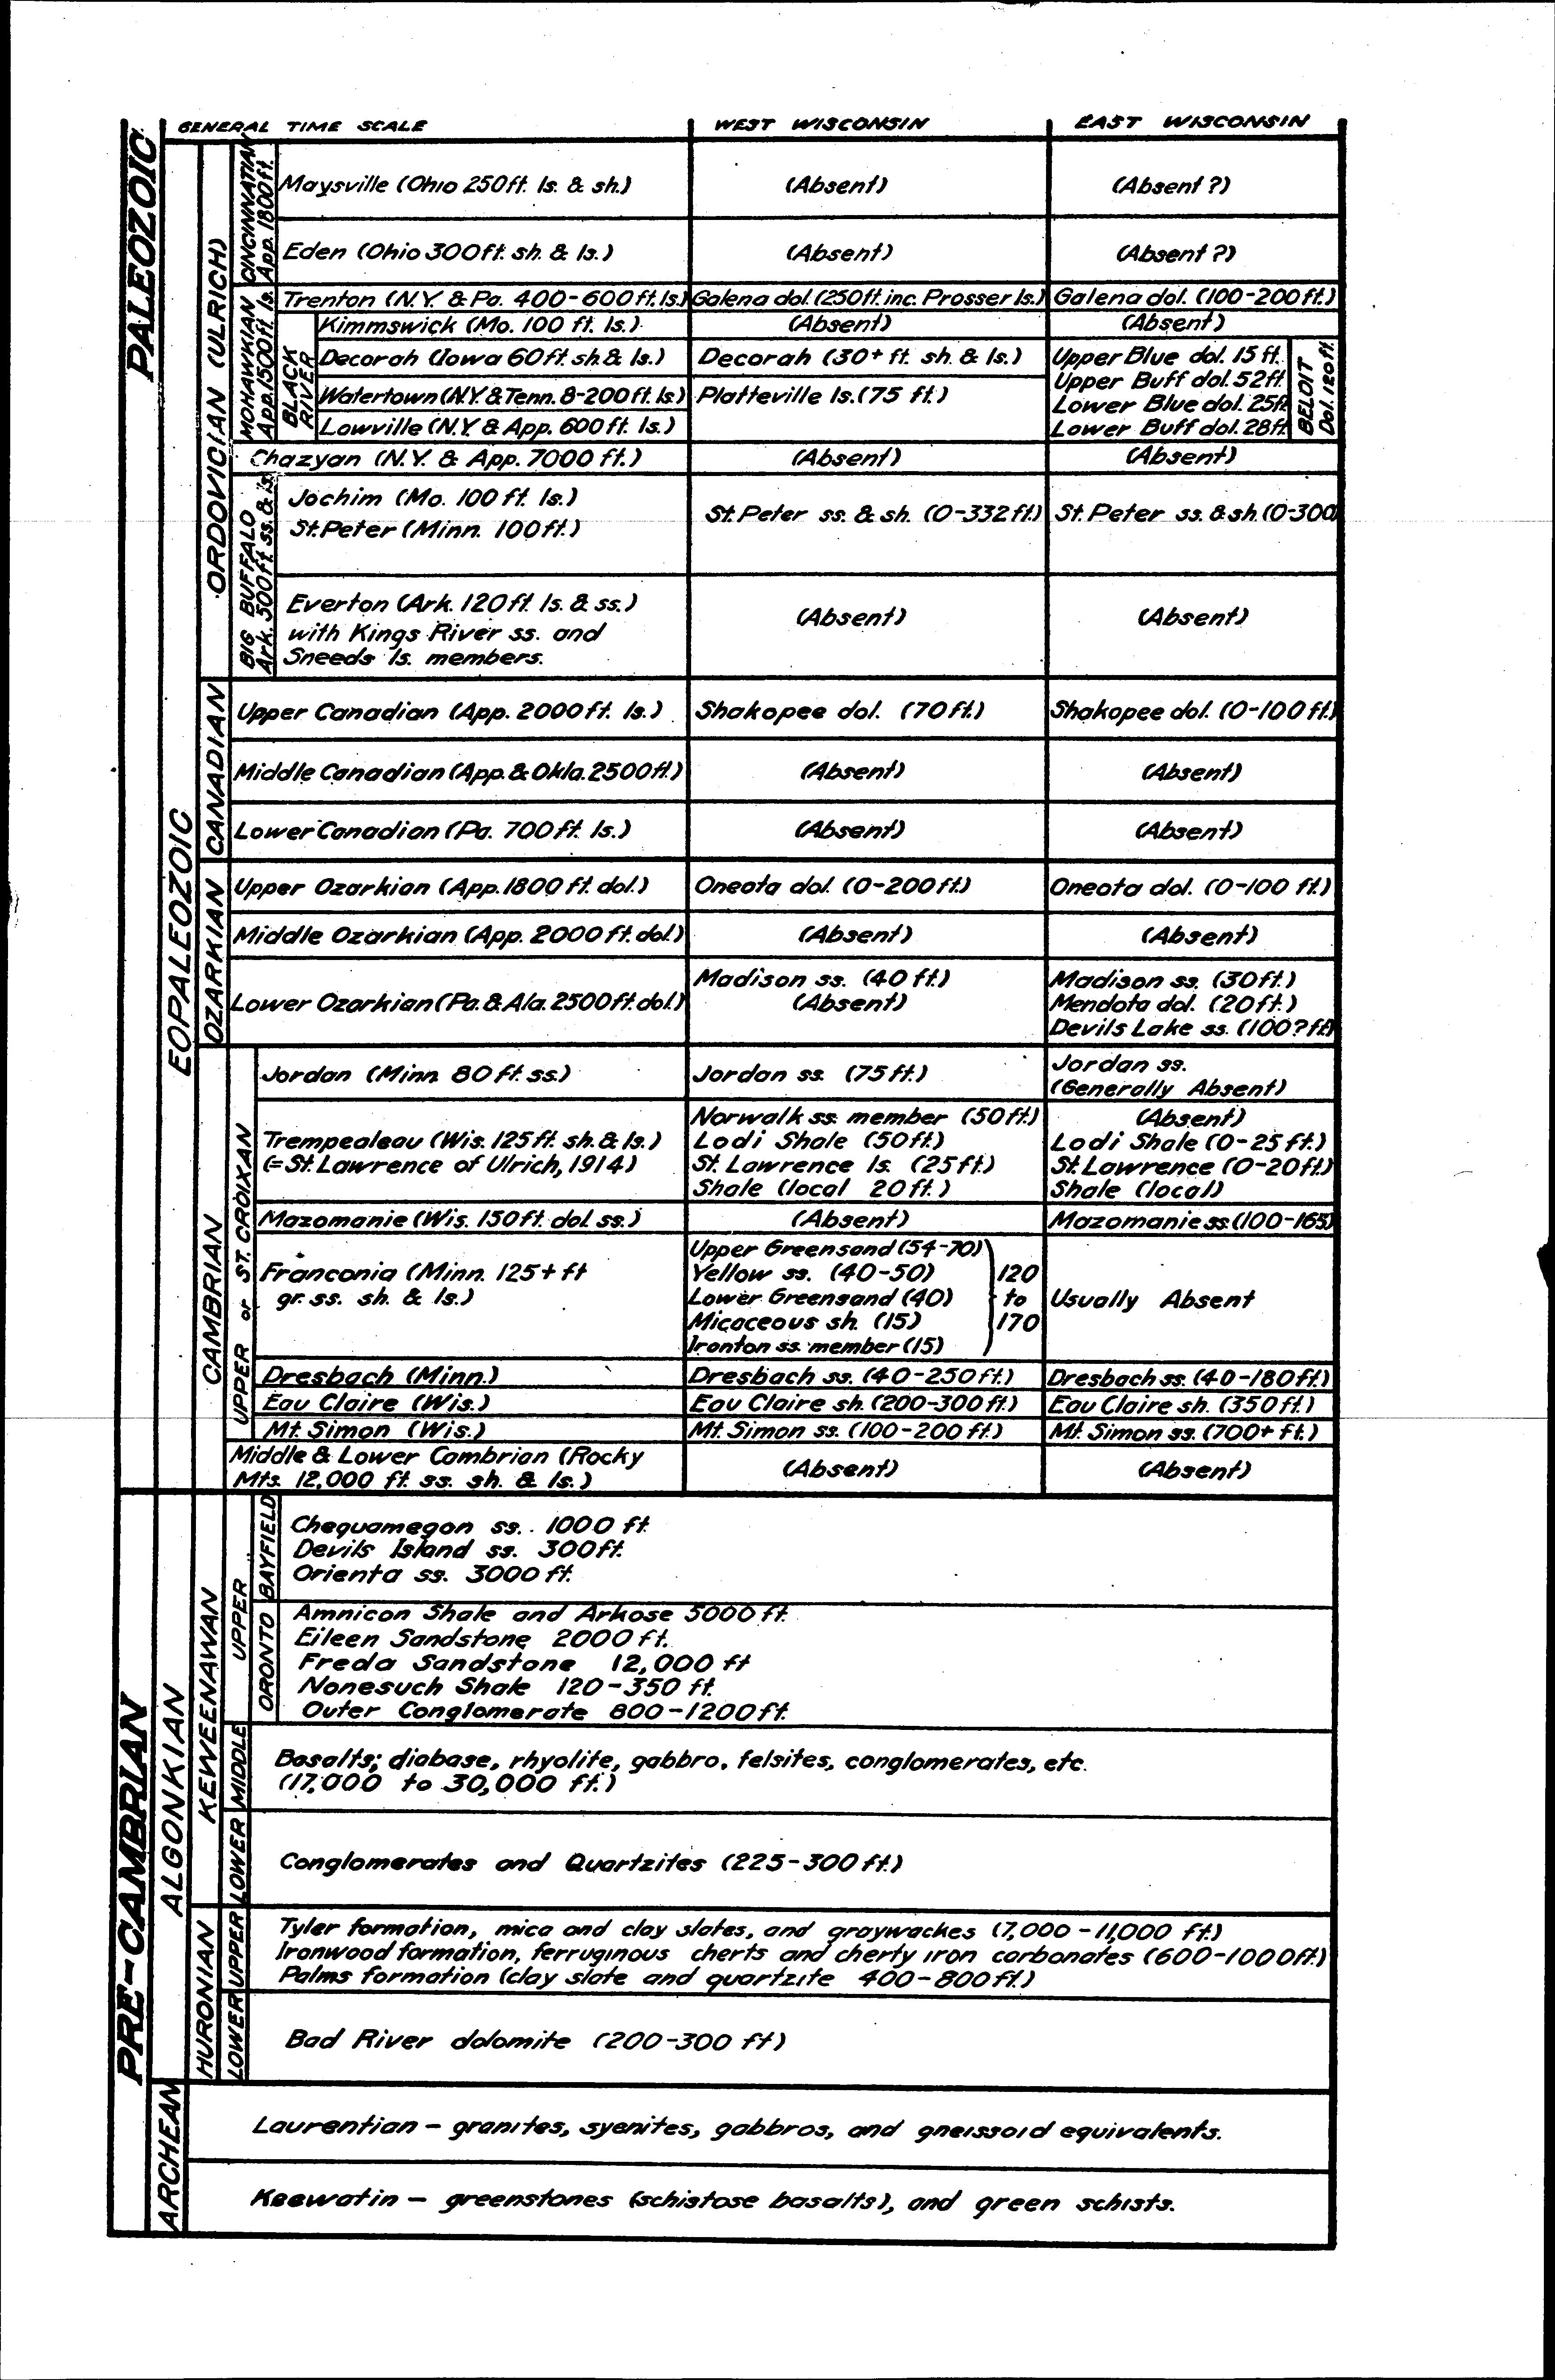 GENERAL TIME SCALE WEST WISCONSIN EAST WISCONSIN
PALEOZOIC
EOPALEOZOIC
ORDOVICIAN (ULRICH)
CINCINNATIAN
App. 1800 ft.
Maysville (Ohio 250 ft. ls. & sh.) (Absent) (Absent ?)
Eden (Ohio 300 ft. sh. & ls.) (Absent) (Absent ?)
MOHAWKIAN
App. 1500 ft. ls.
Trenton (N.Y. & Pa. 400-600 ft. ls.) Galena dol. (250 ft. inc. Prosser ls.) Galena dol. (100-200 ft.)
BLACK
RIVER
Kimmswick (Mo. 100 ft. ls.) (Absent) (Absent)
Decorah (Iowa 60 ft. sh. & ls.) Decorah (30+ ft. sh. & ls.) Upper Blue dol. 15 ft.
Upper Buff dol. 52 ft.
Watertown (N.Y. & Tenn. 8-200 ft. ls.) Platteville ls. (75 ft.) Lower Blue dol. 25 ft.
Lowville (N.Y. & App. 600 ft. ls.) Lower Buff dol. 28 ft.
BELOIT
Dol. 120 ft.
Chazyan (N.Y. & App. 7000 ft.) (Absent) (Absent)
BIG BUFFALO
Ark. 500 ft. ss. & ls.
Jochim (Mo. 100 ft. ls.)
St. Peter (Minn. 100 ft.) St. Peter ss. & sh. (0-332 ft.) St. Peter ss. & sh. (0-300)
Everton (Ark. 120 ft. ls. & ss.)
with Kings River ss. and
Sneeds ls. members. (Absent) (Absent)
CANADIAN
Upper Canadian (App. 2000 ft. ls.) Shakopee dol. (70 ft.) Shakopee dol. (0-100 ft.)
Middle Canadian (App. & Okla. 2500 ft.) (Absent) (Absent)
Lower Canadian (Pa. 700 ft. ls.) (Absent) (Absent)
OZARKIAN
Upper Ozarkian (App. 1800 ft. dol.) Oneota dol. (0-200 ft.) Oneota dol. (0-100 ft.)
Middle Ozarkian (App. 2000 ft. dol.) (Absent) (Absent)
Madison ss. (40 ft.) Madison ss. (30 ft.)
Lower Ozarkian (Pa. & Ala. 2500 ft. dol.) (Absent) Mendota dol. (20 ft.)
Devils Lake ss. (100? ft.)
CAMBRIAN
UPPER or ST. CROIXAN
Jordan (Minn. 80 ft. ss.) Jordan ss. (75 ft.) Jordan ss.
(Generally Absent)
Norwalk ss. member (50 ft.) (Absent)
Trempealeau (Wis. 125 ft. sh. & ls.) Lodi Shale (50 ft.) Lodi Shale (0-25 ft.)
(=St. Lawrence of Ulrich, 1914) St. Lawrence ls. (25 ft.) St. Lawrence (0-20 ft.)
Shale (local 20 ft.) Shale (local)
Mazomanie (Wis. 150 ft. dol. ss.) (Absent) Mazomanie ss. (100-165)
Upper Greensand (54-70)
Franconia (Minn. 125+ ft Yellow ss. (40-50) 120
gr. ss. sh. & ls.) Lower Greensand (40) to Usually Absent
Micaceous sh. (15) 170
Ironton ss. member (15)
Dresbach (Minn.) Dresbach ss. (40-250 ft.) Dresbach ss. (40-180 ft.)
Eau Claire (Wis.) Eau Claire sh. (200-300 ft.) Eau Claire sh. (350 ft.)
Mt. Simon (Wis.) Mt. Simon ss. (100-200 ft.) Mt. Simon ss. (700+ ft.)
Middle & Lower Cambrian (Rocky
Mts. 12,000 ft. ss. sh. & ls.) (Absent) (Absent)
PRE-CAMBRIAN
ALGONKIAN
KEWEENAWAN
UPPER
BAYFIELD
Chequamegon ss. 1000 ft.
Devils Island ss. 300 ft.
Orienta ss. 3000 ft.
ORONTO
Amnicon Shale and Arkose 5000 ft.
Eileen Sandstone 2000 ft.
Freda Sandstone 12,000 ft
Nonesuch Shale 120-350 ft.
Outer Conglomerate 800-1200 ft.
MIDDLE
Basalts; diabase, rhyolite, gabbro, felsites, conglomerates, etc.
(17,000 to 30,000 ft.)
LOWER
Conglomerates and Quartzites (225-300 ft.)
HURONIAN
UPPER
Tyler formation, mica and clay slates, and graywackes (7,000-11,000 ft.)
Ironwood formation, ferruginous cherts and cherty iron carbonates (600-1000 ft.)
Palms formation (clay slate and quartzite 400-800 ft.)
LOWER
Bad River dolomite (200-300 ft)
ARCHEAN
Laurentian - granites, syenites, gabbros, and gneissoid equivalents.
Keewatin - greenstones (schistose basalts), and green schists.